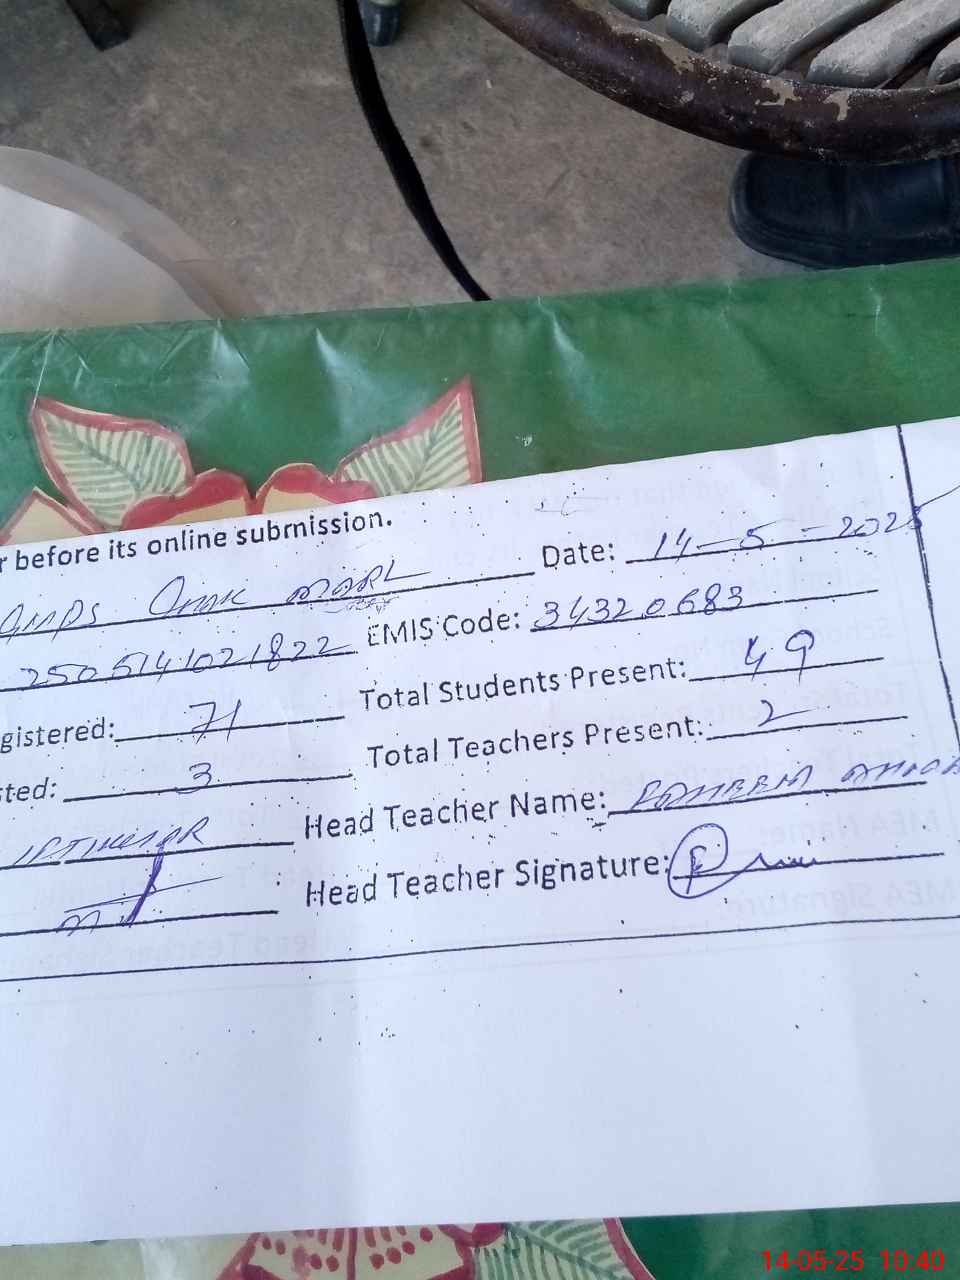 r before its online submission.
GMPS Date: 14-5-2025
2505141021822 EMIS Code: 34320683
gistered: 71 Total Students Present: 49
sted: 3 Total Teachers Present: 2
IFTIKHAR Head Teacher Name:
Head Teacher Signature:
14-05-25 10:40